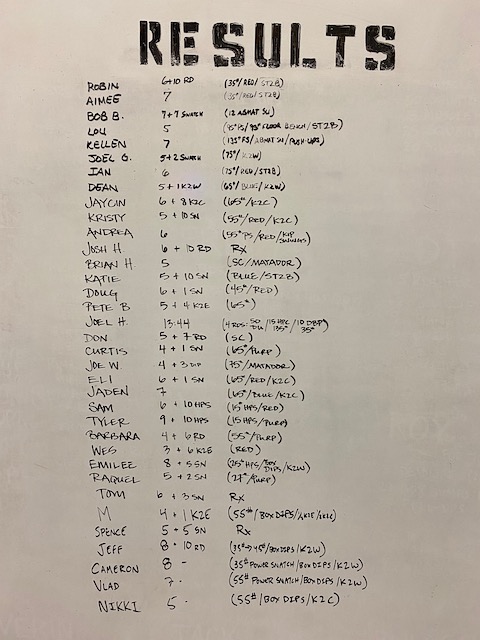 RESULTS
ROBIN 6+10 RD (35#/RED/ST2B)
AIMEE 7 (35#/RED/ST2B)
BOB B. 7+7 SNATCH (12 ABMAT SU)
LOU 5 (75# PS/95# FLOOR BENCH/ST2B)
KELLEN 7 (135# PS/ABMAT SU/PUSH-UPS)
JOEL G. 5+2 SNATCH (75#/K2W)
IAN 6 (75#/RED/ST2B)
DEAN 5+1 K2W (65#/BLUE/K2W)
JAYCIN 6+8 K2C (65#/K2C)
KRISTY 5+10 SN (55#/RED/K2C)
ANDREA 6 (55# PS/RED/KIP SWINGS)
JOSH H 6+10 RD RX
BRIAN H 5 (SC/MATADOR)
KATIE 5+10 SN (BLUE/ST2B)
DOUG 6+1 SN (45#/RED)
PETE B 5+4 K2E (65#)
JOEL H. 13:44 (4 RDS: 50 DU/15 HPC 135#/10 DBP 35#)
DON 5+7 RD (SC)
CURTIS 4+1 SN (65#/PURP)
JOE W. 4+3 DIP (75#/MATADOR)
ELI 6+1 SN (65#/RED/K2C)
JADEN 7 (65#/BLUE/K2C)
SAM 6+10 HPS (15# HPS/RED)
TYLER 9+10 HPS (15 HPS/PURP)
BARBARA 4+6 RD (55#/PURP)
WES 3+6 K2E (RED)
EMILEE 8+5 SN (25# HPS/BOX DIPS/K2W)
RAQUEL 5+2 SN (27#/PURP)
TOM 6+3 SN RX
M 4+1 K2E (55#/BOX DIPS/K2E/K2C)
SPENCE 5+5 SN RX
JEFF 8+10 RD (35#→45#/BOX DIPS/K2W)
CAMERON 8 - (35# POWER SNATCH/BOX DIPS/K2W)
VLAD 7 - (55# POWER SNATCH/BOX DIPS/K2W)
NIKKI 5 - (55#/BOX DIPS/K2C)